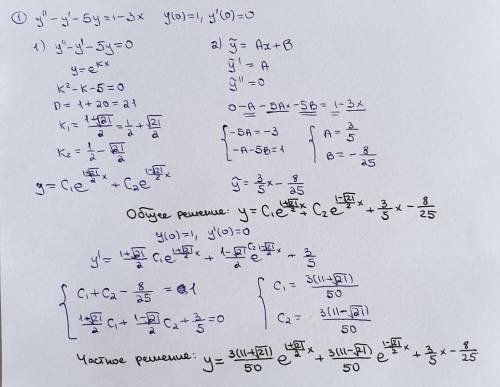 ① y'' - y' - 5y = 1 - 3x    y(0) = 1, y'(0) = 0
1) y'' - y' - 5y = 0
y = e^{kx}
k² - k - 5 = 0
D = 1 + 20 = 21
k₁ = (1+√21)/2 = 1/2 + √21/2
k₂ = 1/2 - √21/2
y = C₁e^{(1+√21)/2 x} + C₂e^{(1-√21)/2 x}
2) ỹ = Ax + B
ỹ' = A
ỹ'' = 0
0 - A - 5Ax - 5B = 1 - 3x
{ -5A = -3
-A - 5B = 1
{ A = 3/5
B = -8/25
ỹ = 3/5 x - 8/25
Общее решение: y = C₁e^{(1+√21)/2 x} + C₂e^{(1-√21)/2 x} + 3/5 x - 8/25
y(0) = 1, y'(0) = 0
y' = (1+√21)/2 C₁e^{(1+√21)/2 x} + (1-√21)/2 C₂ e^{(1-√21)/2 x} + 3/5
{ C₁ + C₂ - 8/25 = 1
(1+√21)/2 C₁ + (1-√21)/2 C₂ + 3/5 = 0
{ C₁ = 3(11+√21)/50
C₂ = 3(11-√21)/50
Частное решение: y = 3(11+√21)/50 e^{(1+√21)/2 x} + 3(11-√21)/50 e^{(1-√21)/2 x} + 3/5 x - 8/25